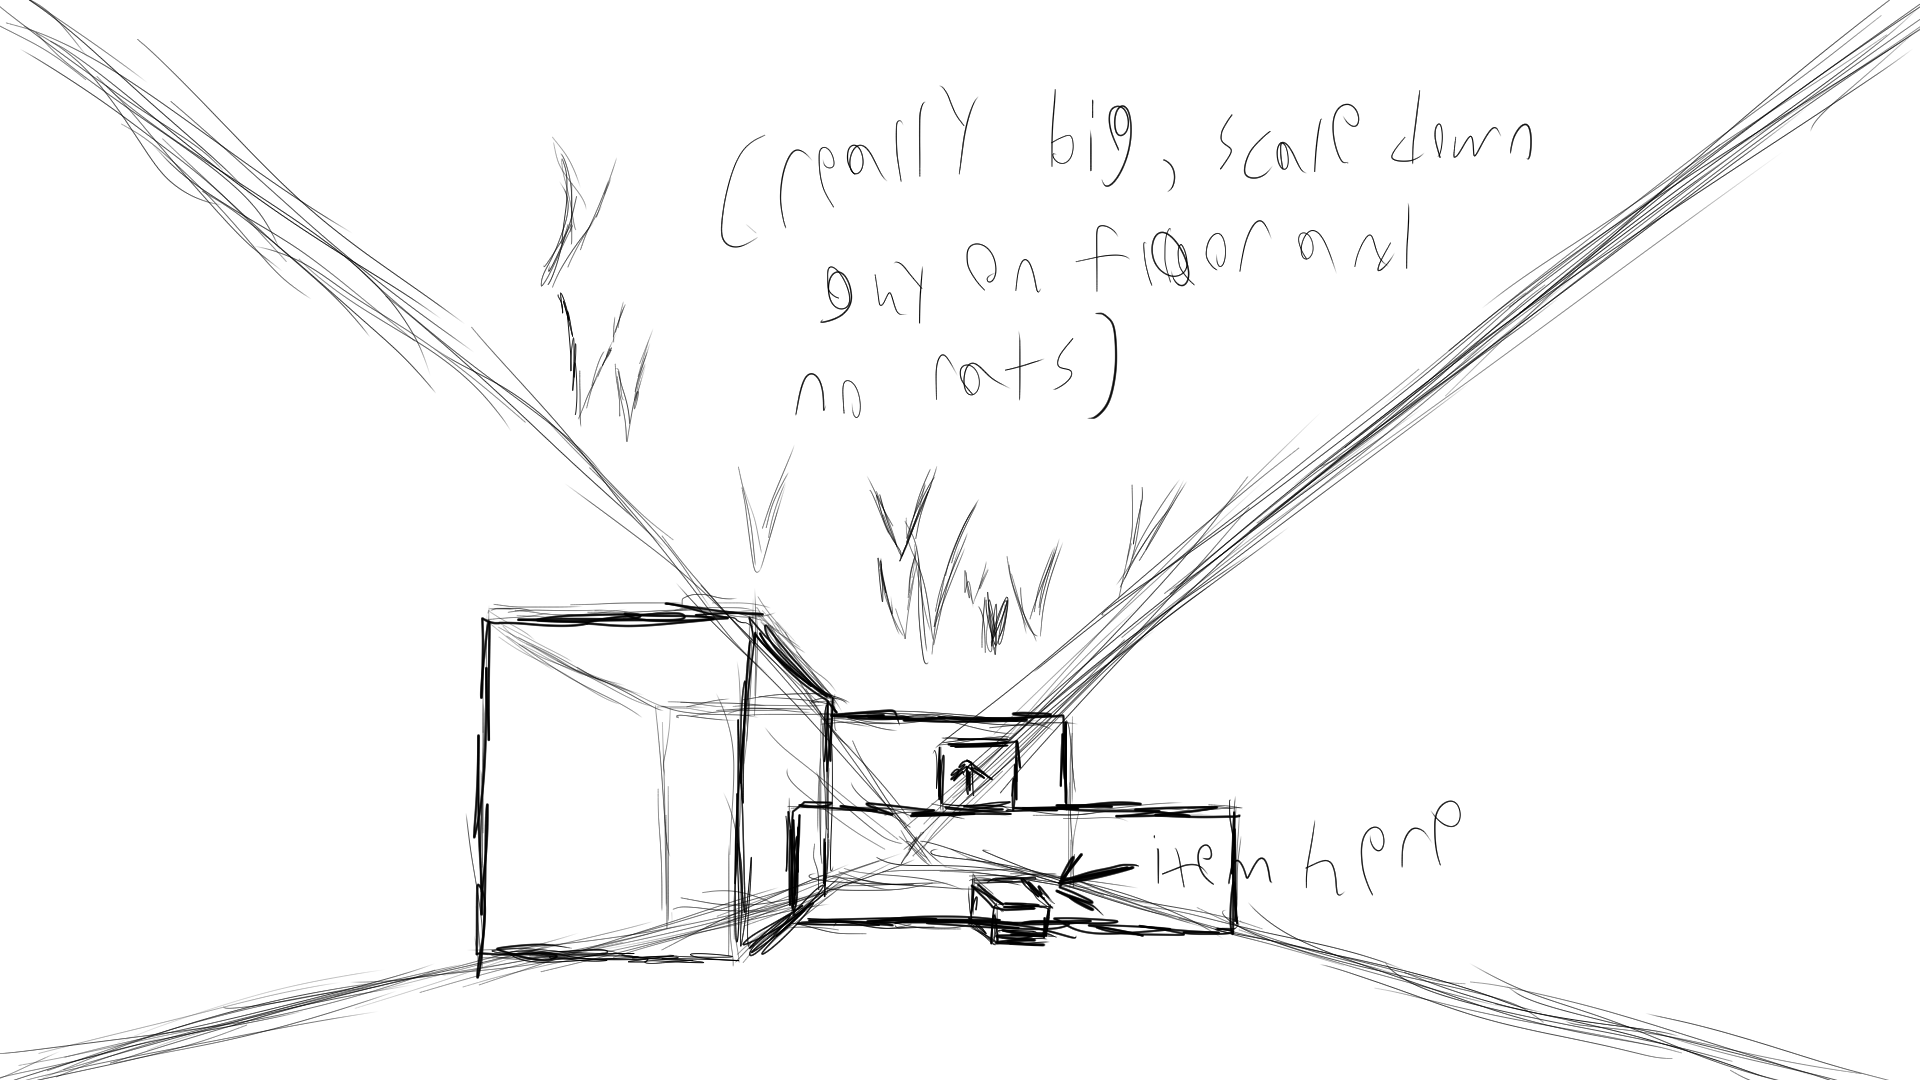 (really big, scale down
guy on floor and
no rats)
item here